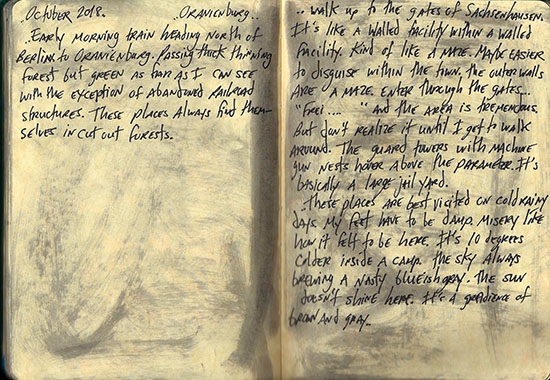 October 2018. ..Oranienburg..
Early morning train heading north of
Berlin to Oranienburg. Passing thick thinning
forest but green as far as I can see
with the exception of abandoned railroad
structures. These places always find them-
selves in cut out forests.
.. walk up to the gates of Sachsenhausen.
It's like a walled facility within a walled
facility. Kind of like a maze. Maybe easier
to disguise within the town. The outer walls
are a maze. Enter through the gates...
"Frei .... " and the area is tremendous.
But don't realize it until I get to walk
around. The guard towers with machine
gun nests hover above the parameter. It's
basically a large jail yard.
These places are best visited on cold rainy
days. My feet have to be damp. Misery like
how it felt to be here. It's 10 degrees
colder inside a camp. The sky always
brewing a nasty blueish gray. The sun
doesn't shine here. It's a gradience of
brown and gray..